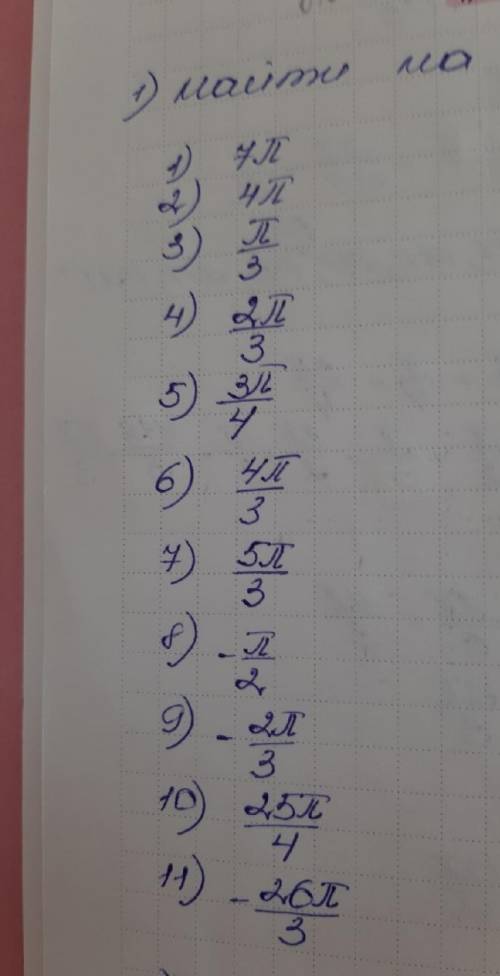 1) найти на
1) 7π
2) 4π
3) π/3
4) 2π/3
5) 3π/4
6) 4π/3
7) 5π/3
8) -π/2
9) -2π/3
10) 25π/4
11) -26π/3